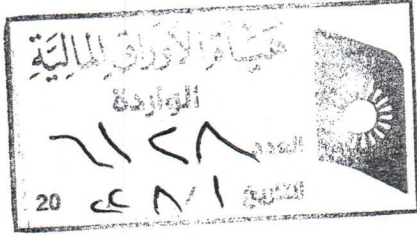 هيئة الأوراق المالية
الواردة
العدد ٦١٢٨
التاريخ ١ / ٨ 20